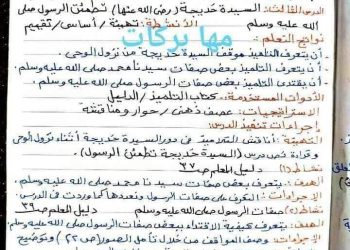 الدرس الثالث: السيدة خديجة (رضي الله عنها) تطمئن الرسول صلى
الله عليه وسلم الأنشطة: تهيئة / أساسي / تقييم
مها بركات
نواتج التعلم:
أن يتعرف التلميذ موقف السيدة خديجة من نزول الوحي.
أن يتعرف التلميذ بعض صفات سيدنا محمد صلى الله عليه وسلم.
أن يقتدى التلميذ ببعض صفات سيدنا محمد صلى الله عليه وسلم.
الأدوات المستخدمة: كتاب التلميذ / الدليل
الاستراتيجيات: عصف ذهني / حوار ومناقشة
إجراءات تنفيذ الدرس:
التهيئة: أناقش التلاميذ في دور السيدة خديجة أثناء نزول الوحي
وقراءة درس (السيدة خديجة تطمئن الرسول)
نشاط (١) دليل المعلم ص ٣٧
الهدف: يتعرف بعض صفات سيدنا محمد صلى الله عليه وسلم.
الإجراءات: التعرف على صفات الرسول كما وردت في الدرس
نشاط (٢) صفات الرسول صلى الله عليه وسلم دليل المعلم ص ٣٩
الهدف: يتعرف كيفية الاقتداء ببعض صفات الرسول صلى الله عليه وسلم
الإجراءات: وصف المواقف من خلال تأمل الصور (ص ٢٢) وتوضيح